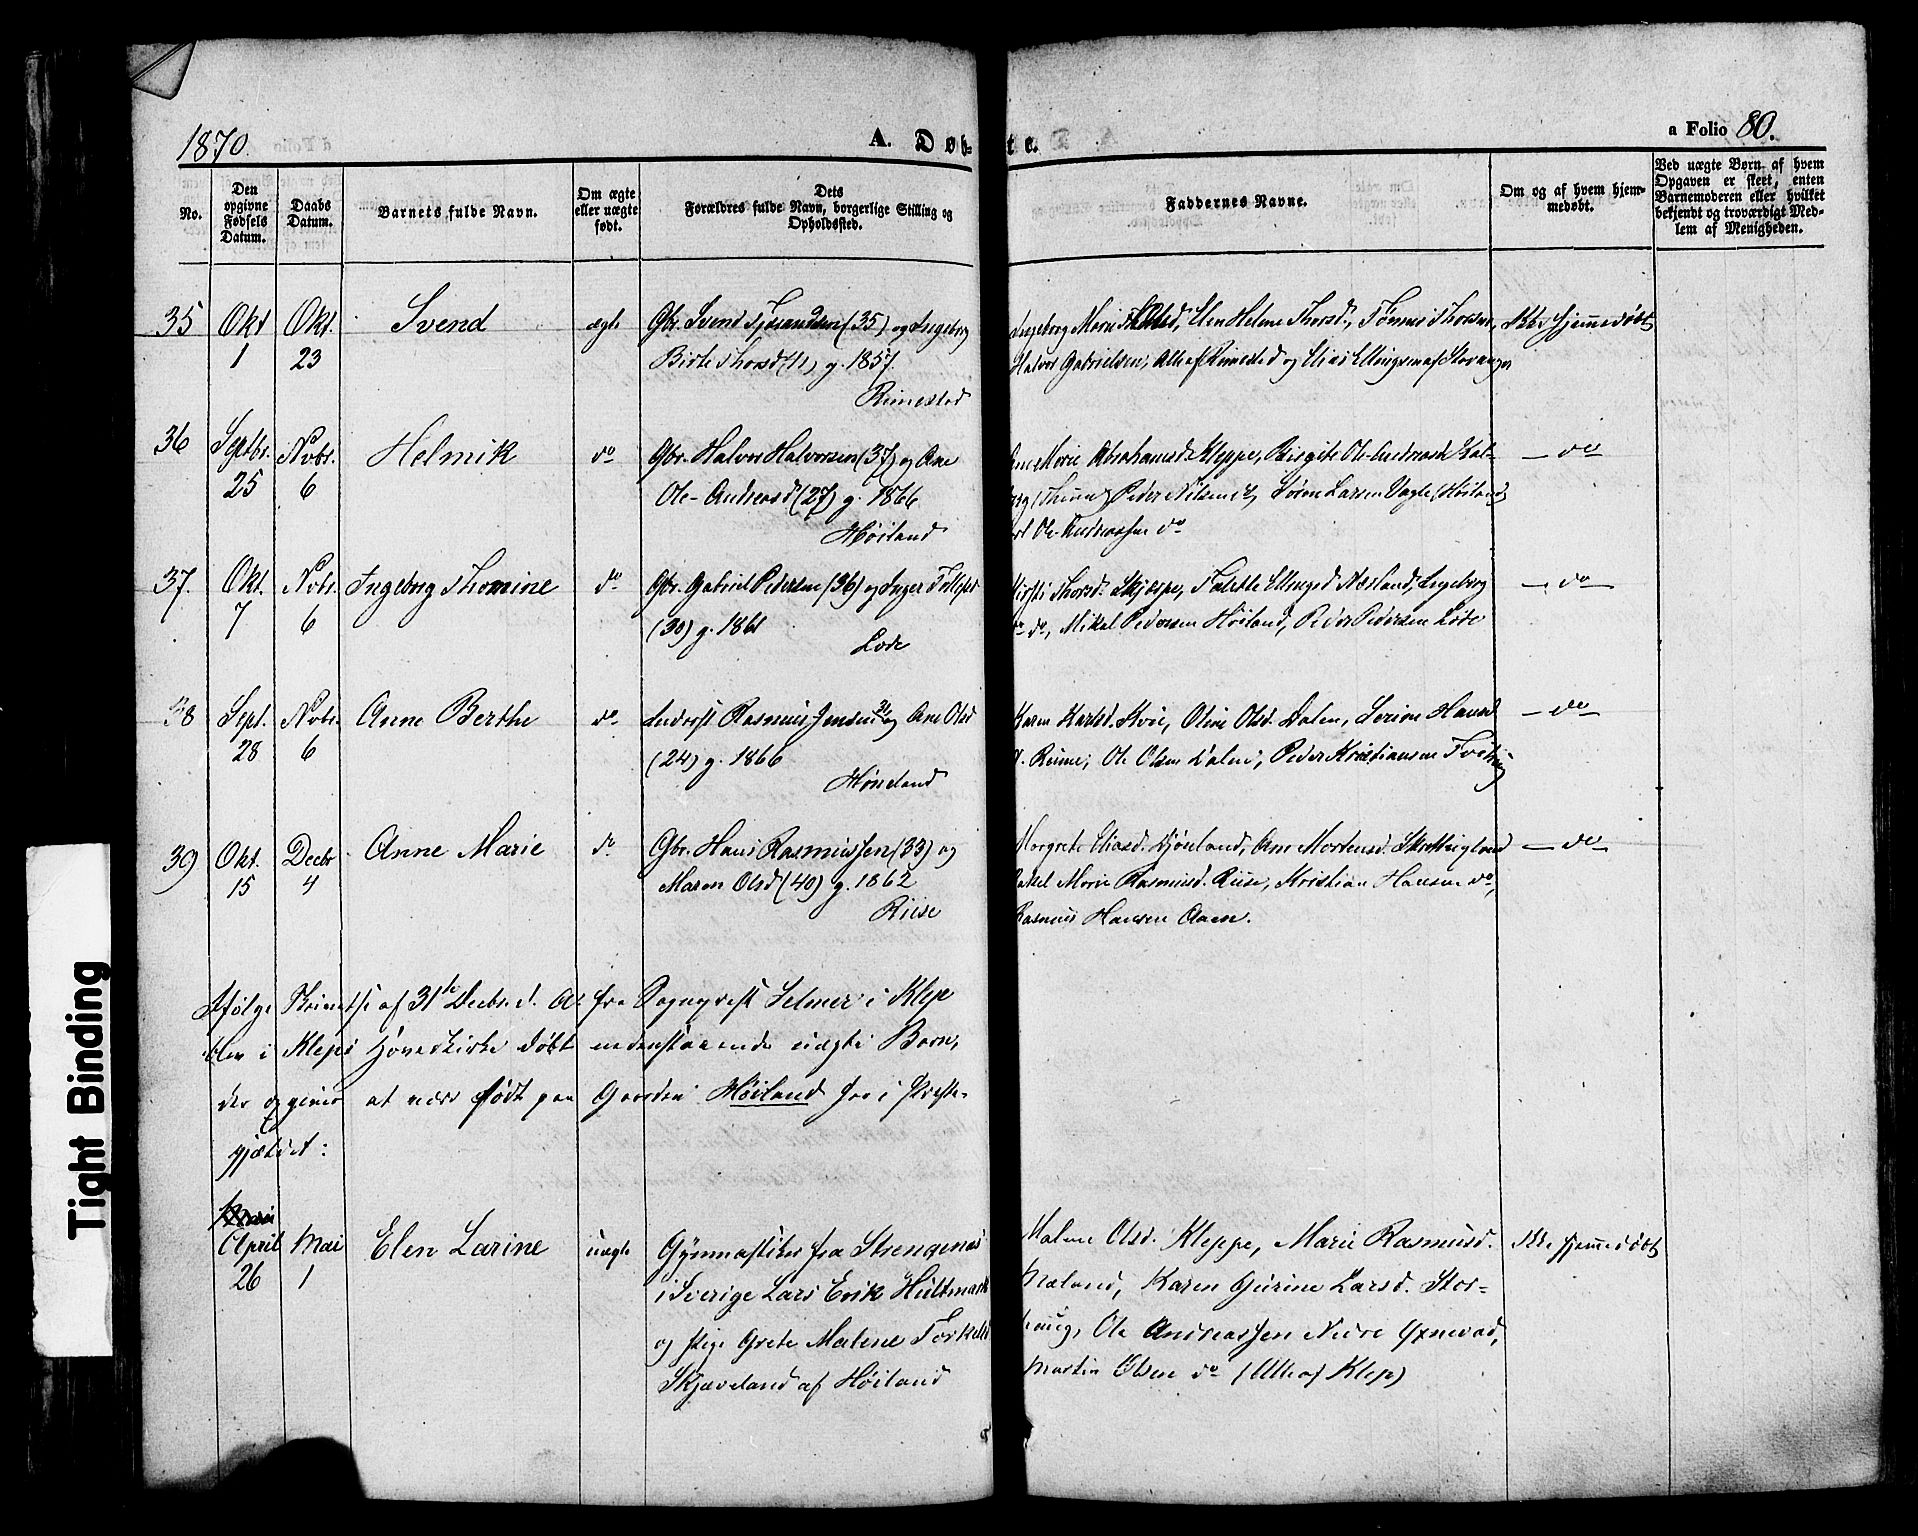 1870.
A. Døb-
te.
a Folio 80.
No.
Den opgivne Fødsels Datum.
Daabs Datum.
Barnets fulde Navn.
Om ægte eller uægte født.
Dets Forældres fulde Navn, borgerlige Stilling og Opholdssted.
Faddernes Navne.
Om og af hvem hjem-
medøbt.
Ved uægte Børn, af hvem
Opgaven er skeet, enten
Barnemoderen eller hvilket
bekjendt og troværdigt Med-
lem af Menigheden.
35 Okt 1 Okt. 23 Svend ægte
Gbr. Svend (35) og Ingeborg
Birte Thorsd (41) g. 1857.
Rimestad
Ingeborg Marie Elen Helene Thorsd., Tønnes Thorsen,
Halvor Gabrielsen, Alle af Rimestad og Elias Ellingsen af Stavanger
Ikke hjemmedøbt
36 Septbr. 25 Novbr. 6 Helmik do
Gbr. Halvor Halvorsen (37) og Ane
Ole-Andreasd (27) g. 1866
Høiland
Ane Marie Abrahamsd. Kleppe, Birgite Ole-Andreasd.
Peder Nilsen Søren Larsen Vagle, Høiland
Ole-Andreassen do
— do
37. Okt. 7 Novbr. 6 Ingeborg Thomine do
Gbr. Gabriel Pedersen (36) og Inger
(30) g. 1861
Lode
Kirsti Thorsd. Ellingsd. Næsland, Ingeborg
do, Mikal Pedersen Høiland, Peder Pedersen Lode
— do —
38 Sept. 28 Novbr. 6 Anne Berthe do
Inderst Rasmus Jensen og Ane Olsd
(24) g. 1866
Høneland
Karen Karlsd. Kvie, Oline Olsd. Dalen, Serine Hansd
Ole Olsen Dalen, Peder Kristiansen
— do —
39 Okt. 15 Decbr 4 Anne Marie do
Gbr. Hans Rasmussen (33) og
Maren Olsd (40) g. 1862
Riise
Margrete Eliasd. Ane Mortensd.
Rakel Marie Rasmusd. Riise, Kristian Hansen do,
Rasmus Hansen Aaen.
— do —
Ifølge Skrivelse af 31te Decbr. d. A. fra Sognepræst Selmer i Klep
blev i Kleps Hovedkirke døbt nedenstaaende uægte Barn,
der opgives at være født paa Gaarden Høiland her i Præste-
gjældet:
April 26 Mai 1 Elen Larine uægte
Gymnastiker fra Strengenæs
i Sverige Lars Erik Hultmark
og Pige Grete Malene Torkelsd
Skjæveland af Høiland
Malene Olsd. Kleppe, Marie Rasmusd.
Mæland, Karen Gurine Larsd. Stor-
haug, Ole Andreassen Nedre Øxnevad,
Martin Olsen do (Alle af Klep)
Ikke hjemmedøbt
Tight Binding